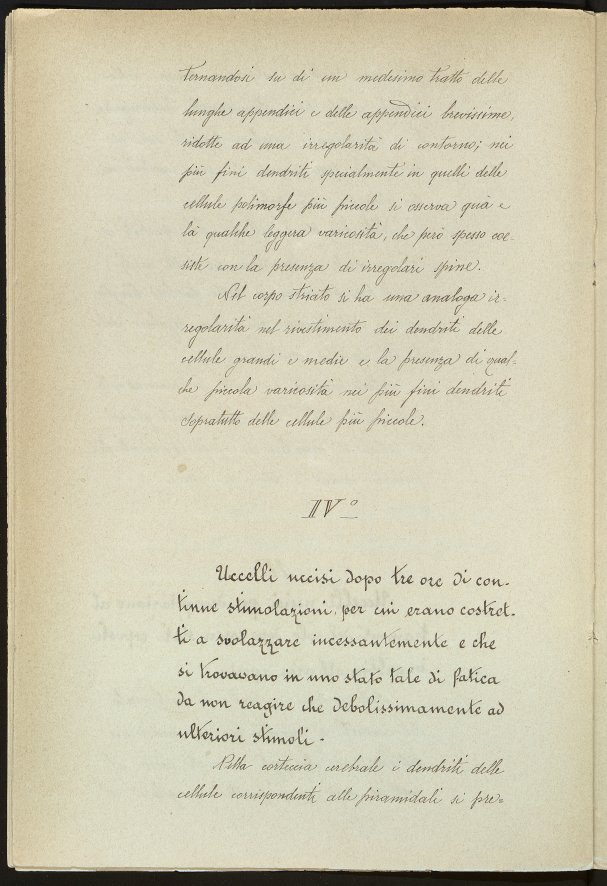 ternandosi su di un medesimo tratto delle
lunghe appendici e delle appendici brevissime,
ridotte ad una irregolarità di contorno; nei
più fini dendriti specialmente in quelli delle
cellule polimorfe più piccole si osserva quà e
là qualche leggera varicosità, che però spesso coe-
siste con la presenza di irregolari spine.
Nel corpo striato si ha una analoga ir-
regolarità nel rivestimento dei dendriti delle
cellule grandi e medie e la presenza di qual-
che piccola varicosità nei più fini dendriti
sopratutto delle cellule più piccole.
IVº
Uccelli uccisi dopo tre ore di con-
tinue stimolazioni, per cui erano costret-
ti a svolazzare incessantemente e che
si trovavano in uno stato tale di fatica
da non reagire che debolissimamente ad
ulteriori stimoli.
Nella corteccia cerebrale i dendriti delle
cellule corrispondenti alle piramidali si pre-